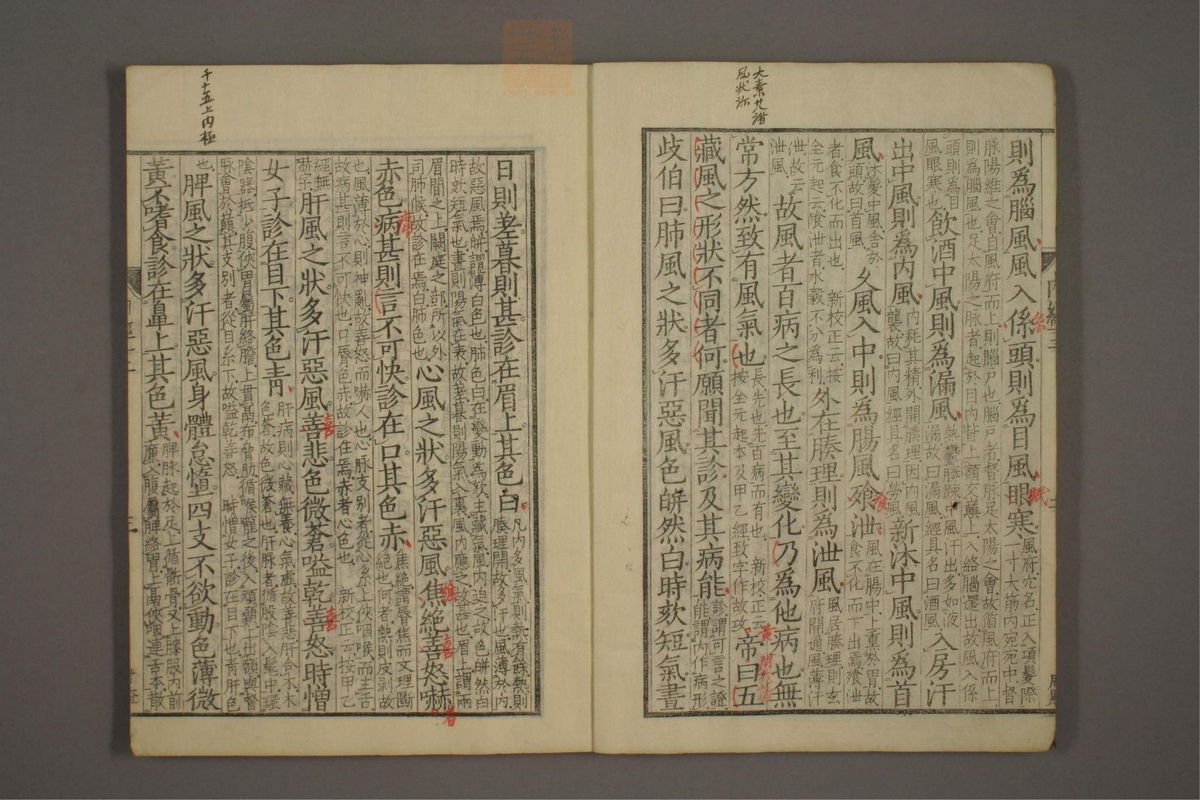 大素九諸
風狀
則為腦風風入係頭則為目風眼寒風府穴名正入項髮際一寸大筋內宛宛中督
脉陽維之會自風府而上則腦户也腦户者督脉足太陽之會故循風府而上則為腦風也足太陽之脉者起於目內眥上額交巔上入絡腦還出故風入係
頭則為目風眼寒也飲酒中風則為漏風熱鬱腠踈中風汗出多如液漏故曰漏風經具名曰酒風入房汗
出中風則為內風內耗其精外開腠理因內風襲故曰內風經具名曰勞風新沐中風則為首
風沐髮中風舍於頭故曰首風久風入中則為腸風飧泄風在腸中上熏於胃故食不化而下出焉飧泄
者食不化而出也新校正云按全元起云飧泄者水穀不分為利外在腠理則為泄風風居腠理則玄府開通風薄汗
泄故云泄風故風者百病之長也至其變化乃為他病也無
常方然致有風氣也長先也先百病而有也新校正云按全元起本及甲乙經致字作故攻帝曰五
藏風之形狀不同者何願聞其診及其病能診謂可言之證能謂內作病形
歧伯曰肺風之狀多汗惡風色皏然白時欬短氣晝
千十五上內極
日則差暮則甚診在眉上其色白凡內多風氣則熱有餘熱則腠理開故多汗也風薄於內
故惡風焉皏謂薄白色也肺色白在變動為欬主藏氣風內迫之故色皏然白時欬短氣也晝則陽氣在表故差暮則陽氣入裏風內應之故甚也眉上謂兩
眉間之上闕庭之部所以外司肺候故診在焉白肺色也心風之狀多汗惡風焦絕善怒嚇
赤色病甚則言不可快診在口其色赤焦絕謂脣焦而文理斷絕也何者熱則皮剥故
也風薄於心則神亂故善怒而嚇人也心脉支別者從心系上俠咽喉而主舌故病甚則言不可快也口唇色赤故診在焉赤者心色也新校正云按甲乙
經無嚇字肝風之狀多汗惡風善悲色微蒼嗌乾善怒時憎
女子診在目下其色青肝病則心藏無養心氣虛故善悲肝合木木色蒼故色微蒼也肝脉者循股陰入髦中環
陰器抵少腹俠胃屬肝絡膽上貫鬲布脅肋循喉嚨之後入頏顙上出額與督脉會於巔其支別者從目系下故嗌乾善怒時憎女子診在目下也青肝色
也脾風之狀多汗惡風身體怠墯四支不欲動色薄微
黃不嗜食診在鼻上其色黃脾脉起於足上循䯒骨又上膝股內前廉入腹屬脾絡胃上鬲俠咽連舌本散